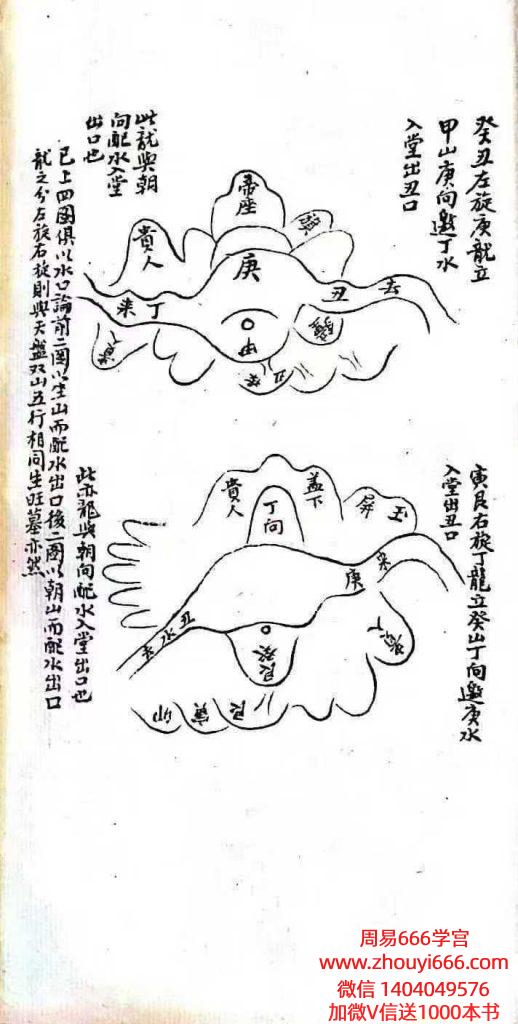 癸丑左旋庚龍立
甲山庚向邀丁水
入堂出丑口
帝座
旗
貴人
庚
丁
来
丑
去
甲
丑
癸
此龍與朝
向配水入堂
出口也
已上四圖俱以水口論前二圖以生山而配水出口後二圖以朝山而配水出口
龍之分左旋右旋則與天盤双山五行相同生旺墓亦然
寅艮右旋丁龍立癸山丁向邀庚水
入堂出丑口
蓋下
貴人
丁向
玉
屏
来
庚
丑
水
去
癸
艮
艮
寅
此亦龍與朝向配水入堂出口也
周易666学宫
www.zhouyi666.com
微信 1404049576
加微V信送1000本书